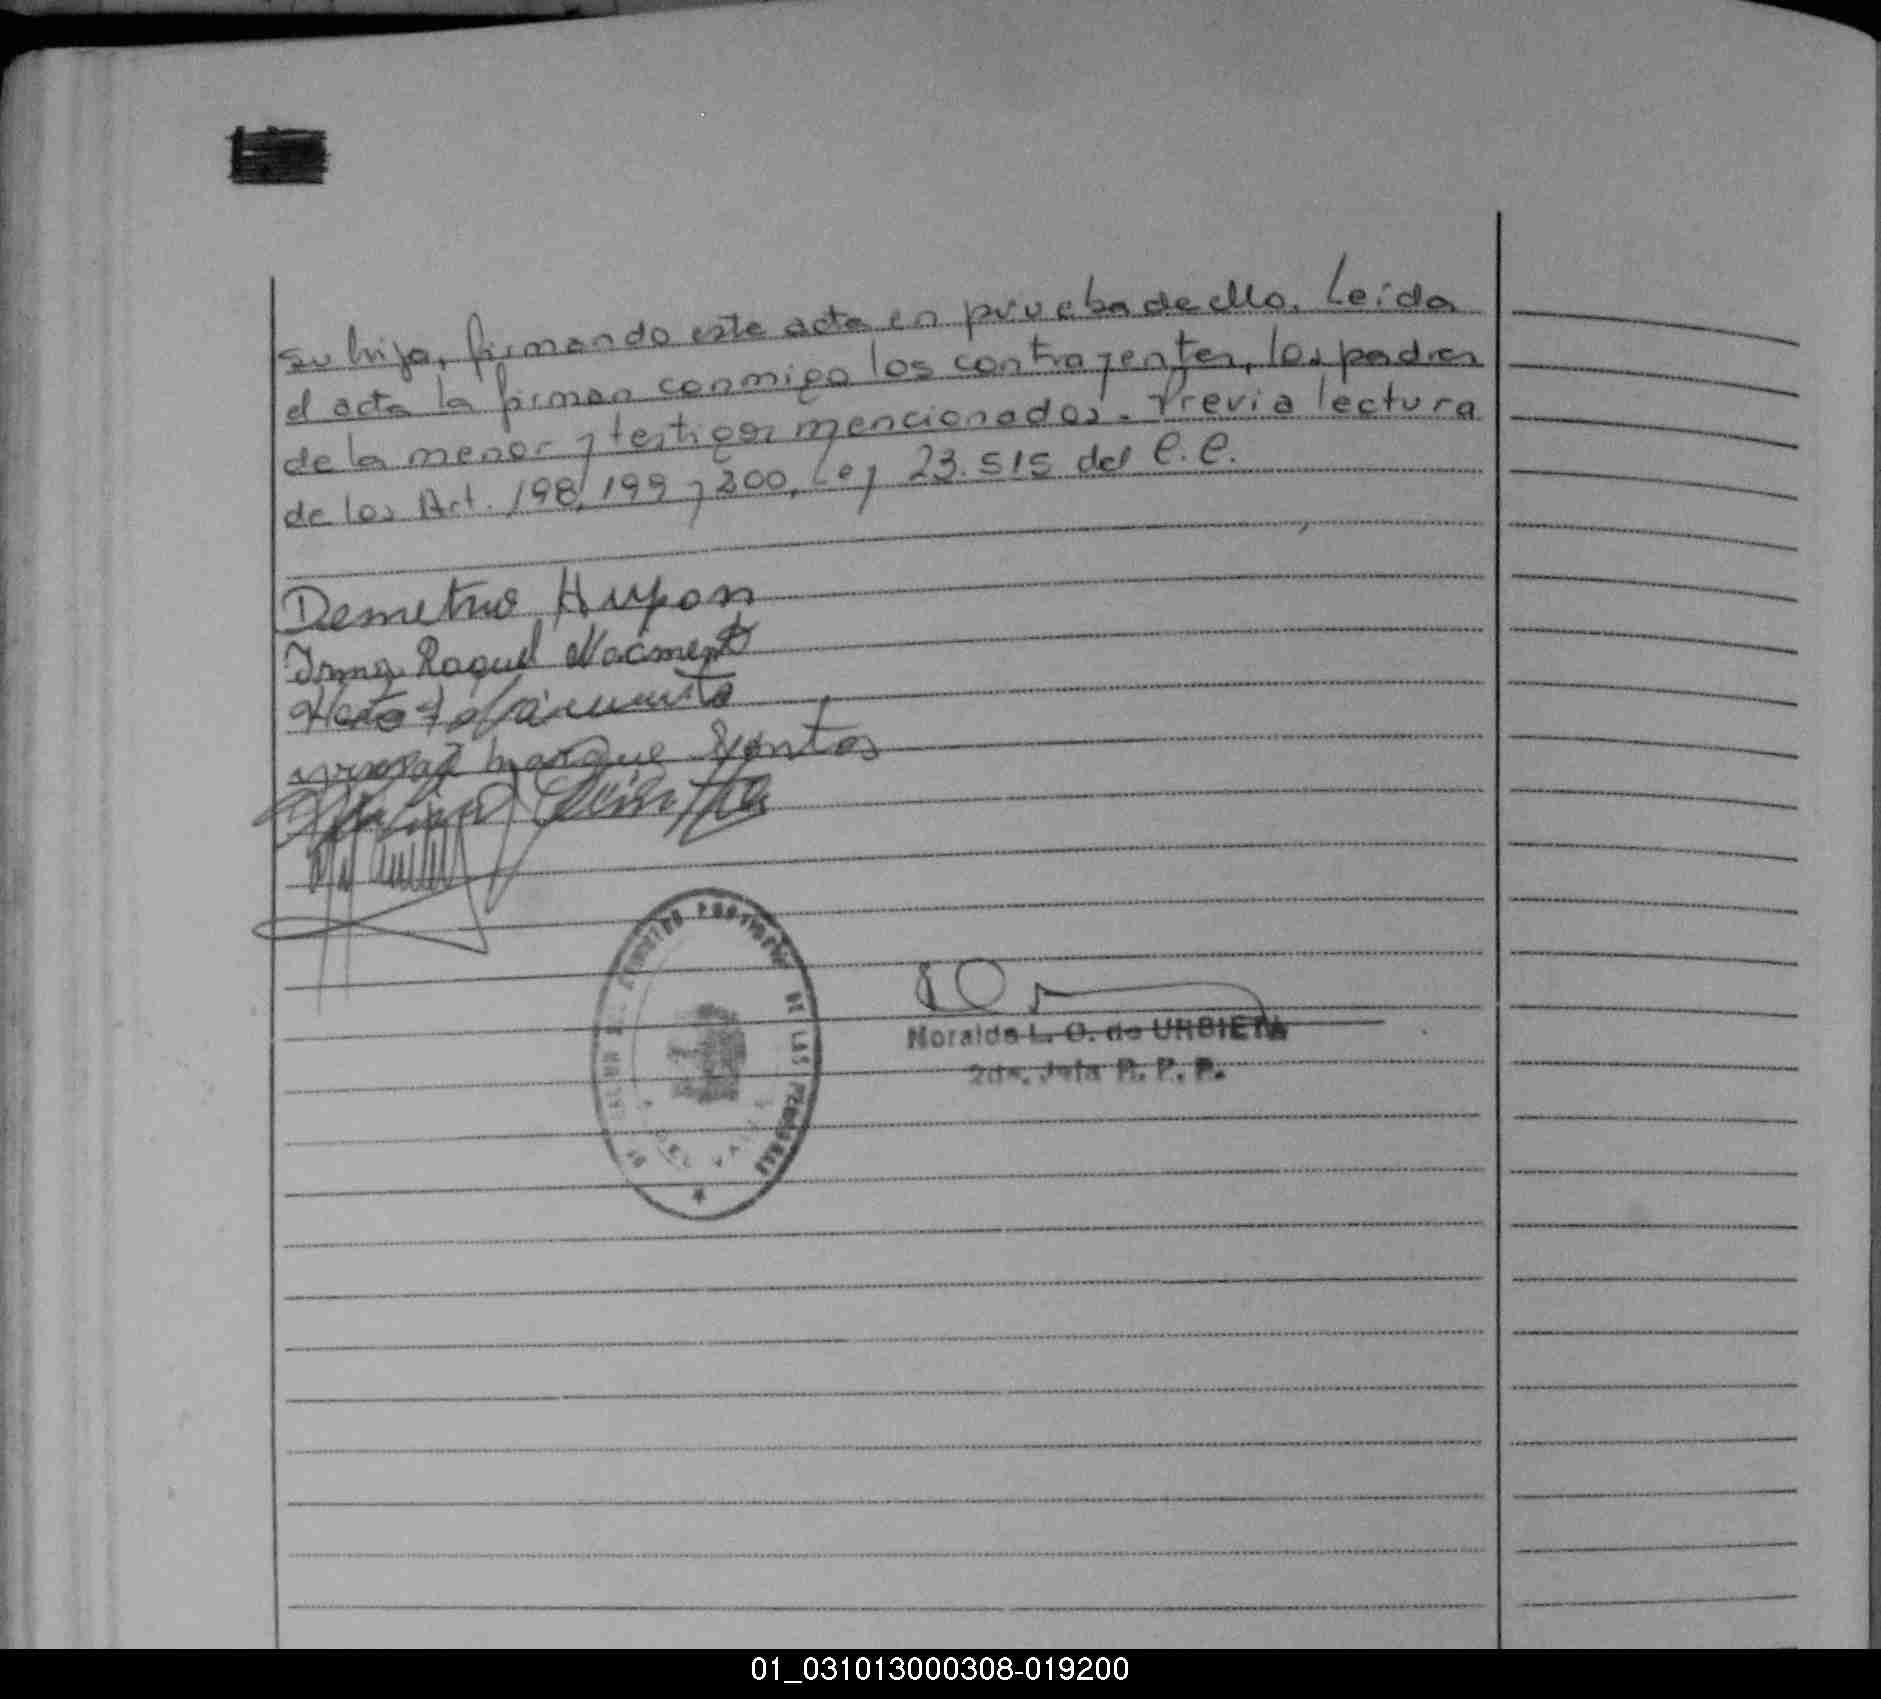 su hija, firmando este acta en prueba de ello. Leída
el acta la firman conmigo los contrayentes, los padres
de la menor y testigos mencionados. Previa lectura
de los Art. 198, 199 y 200, Ley 23.515 del C.C.
Demetrio Hupon
Irma Raquel Nacimento
Nacimento
Santos
DE LAS PERSONAS
L. O. de URBIETA
2da. Jefa R. P. P.
01_031013000308-019200